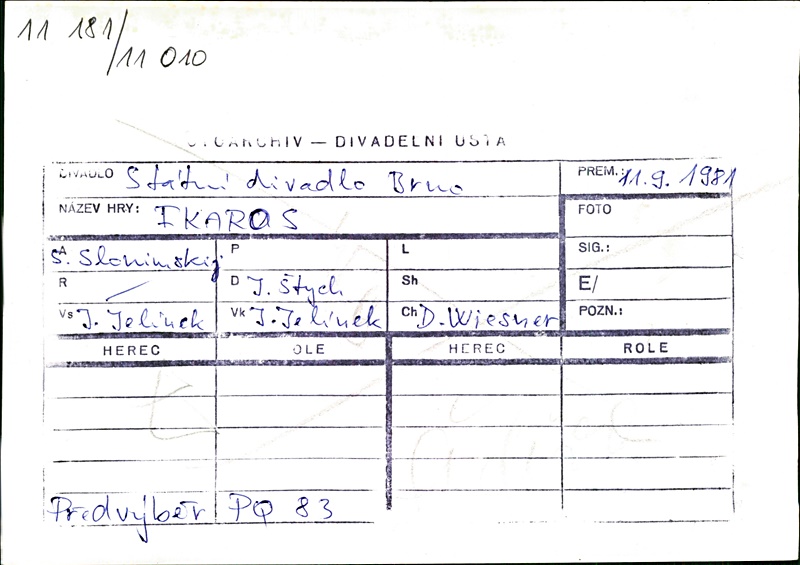 11 181/11 010
FOTOARCHIV — DIVADELNI USTA
DIVADLO Státní divadlo Brno PREM.: 11.9. 1981
NÁZEV HRY: IKAROS FOTO
A S. Slonimskij P L SIG.:
R D J. Štych Sh E/
Vs J. Jelínek Vk J. Jelínek Ch D. Wiesner POZN.:
HEREC OLE HEREC ROLE
Předvýběr PQ 83